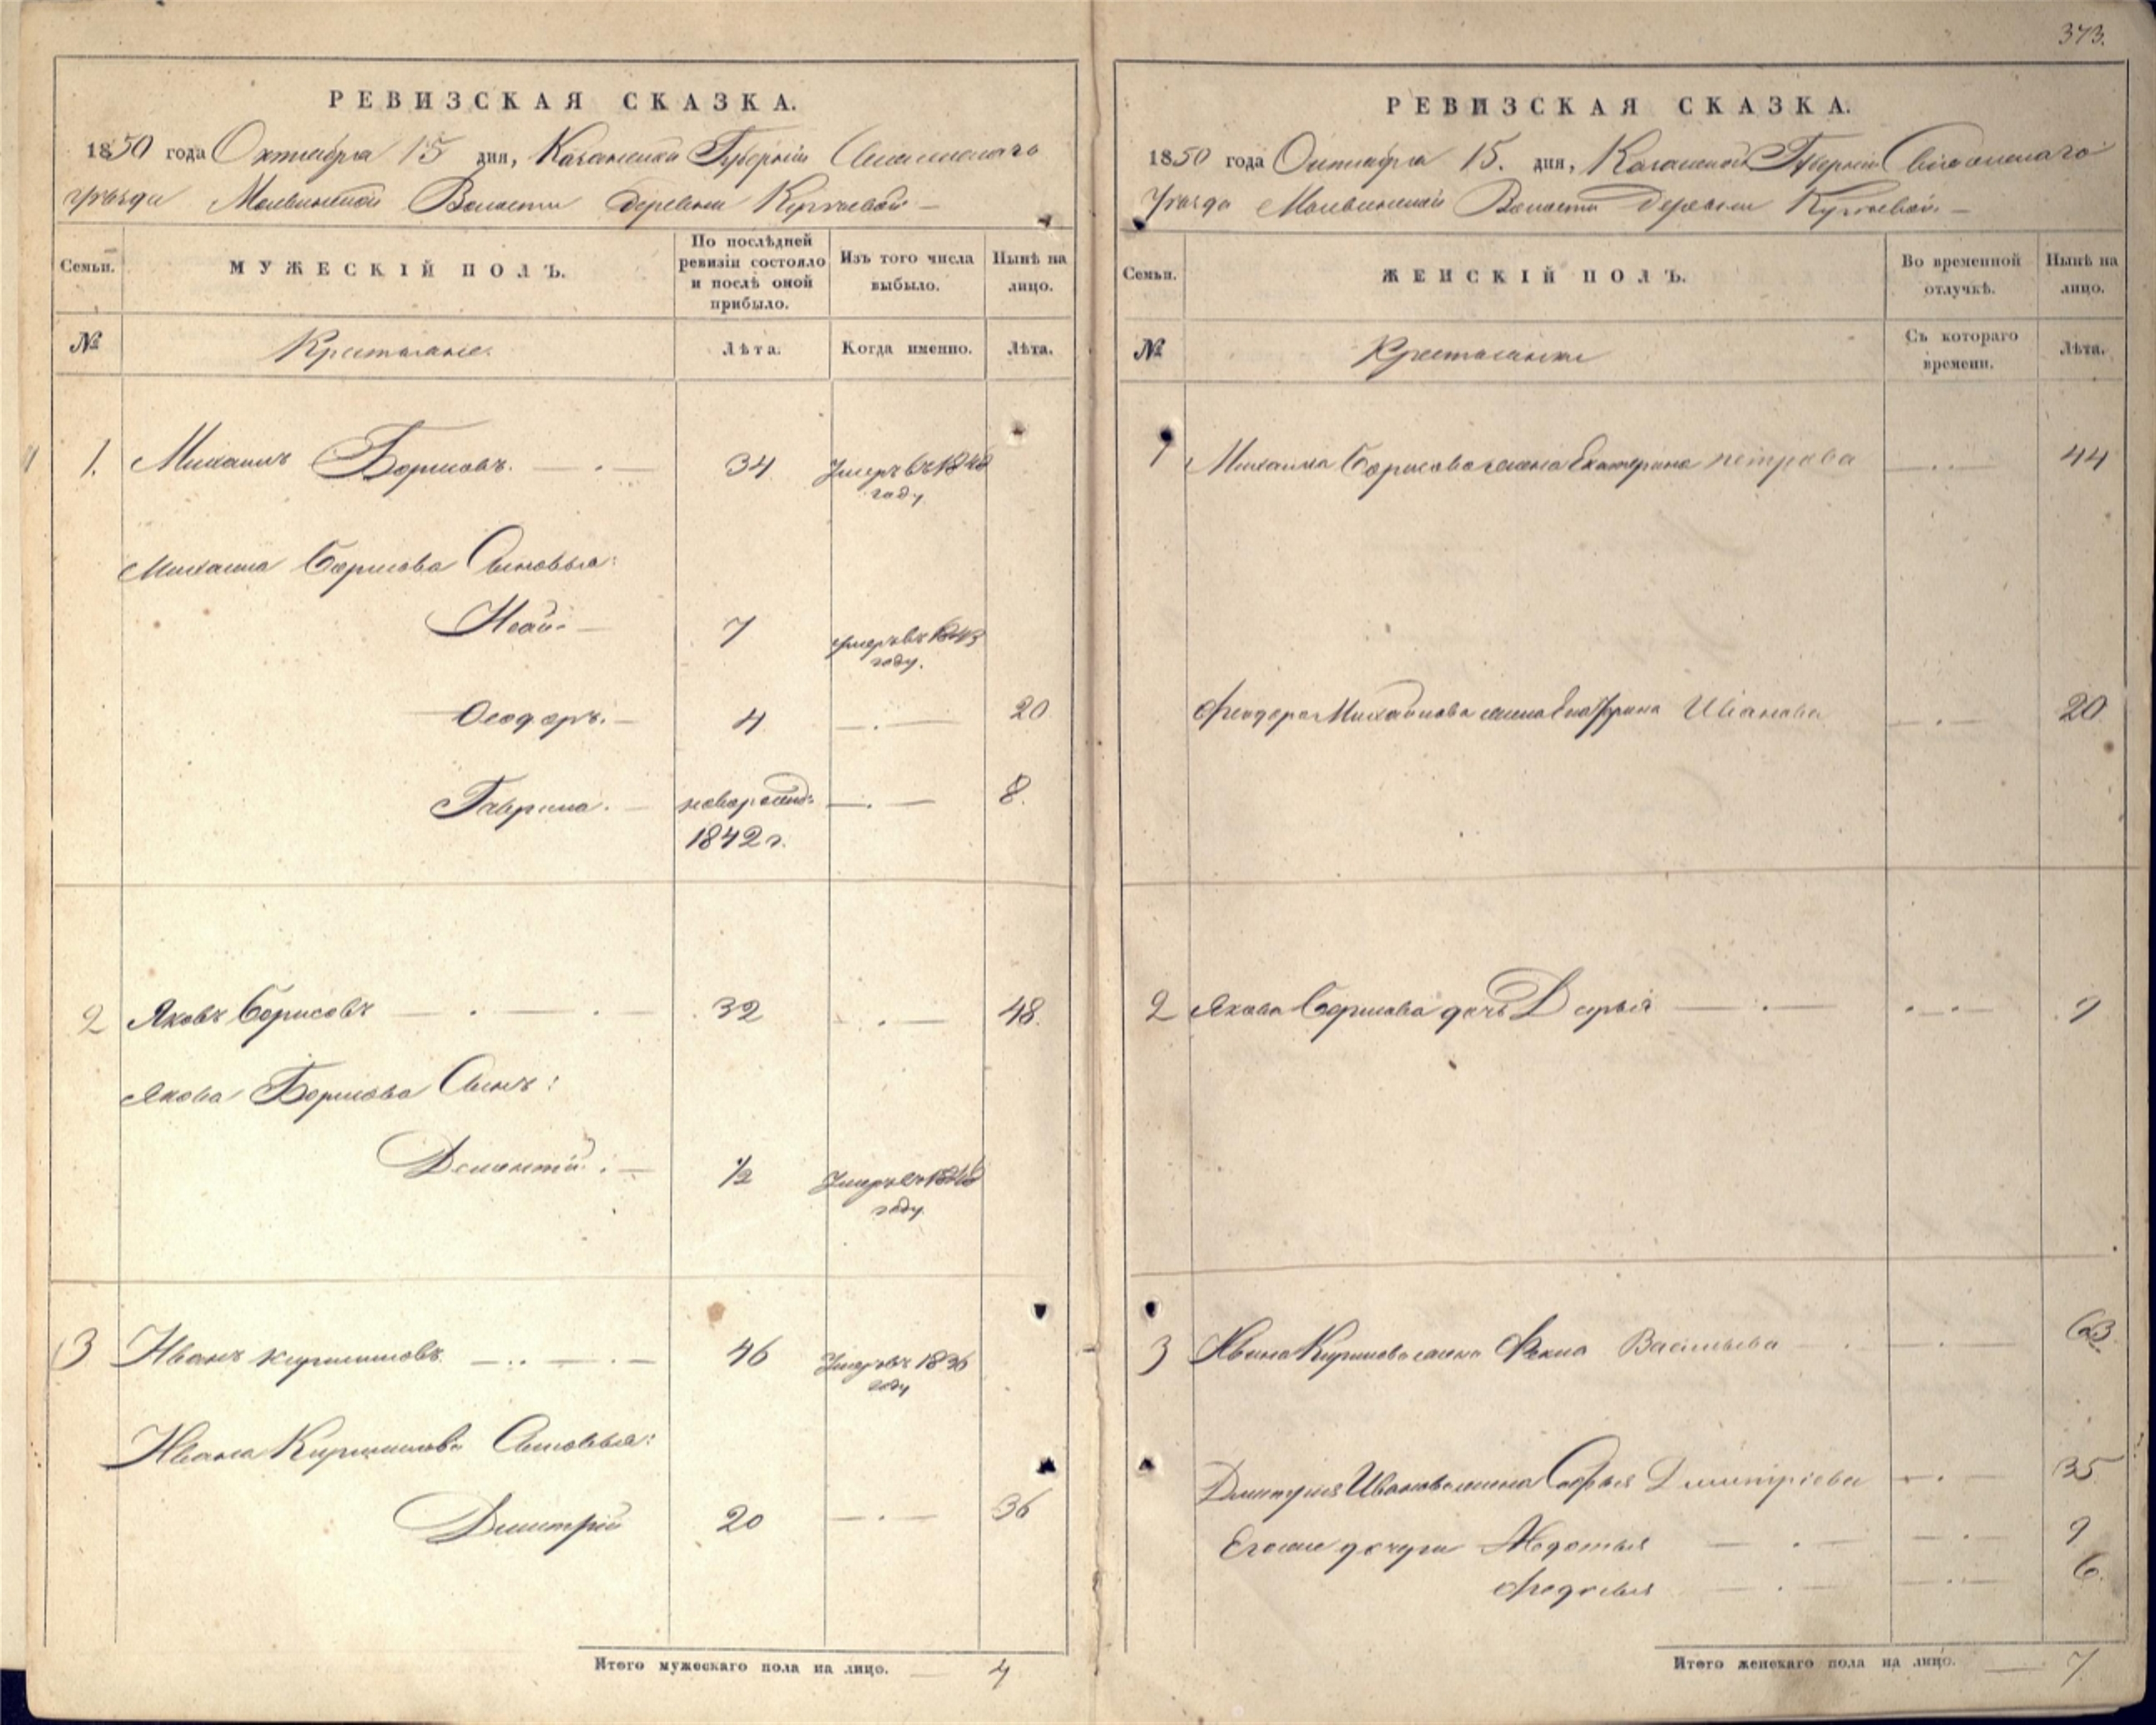 373.
РЕВИЗСКАЯ СКАЗКА.
1850 года Октября 15 дня, Казанской Губернии
Уезда Волости деревни
Семьи.
МУЖЕСКІЙ ПОЛЪ.
По послѣдней ревизіи состояло и послѣ оной прибыло.
Изъ того числа выбыло.
Нынѣ на лицо.
№
Крестьяне.
Лѣта.
Когда именно.
Лѣта.
1. Михаилъ Борисовъ. 34 Умеръ въ году
Михаила Борисова Сыновья:
7 умеръ въ 1843 году.
Ѳеодоръ. 4 20
Гаврила. новорожд: 8.
1842 г.
2 Яковъ Борисовъ 32 48.
Якова Борисова Сынъ:
Дементій. 1/2 Умеръ въ году.
3 Иванъ Кирилловъ. 46 Умеръ въ 1836 году
Ивана Кириллова Сыновья:
Дмитрій 20 36
Итого мужескаго пола на лицо. 4
РЕВИЗСКАЯ СКАЗКА.
1850 года Октября 15. дня, Казанской Губернии
Уезда Волости деревни
Семьи.
ЖЕНСКІЙ ПОЛЪ.
Во временной отлучкѣ.
Нынѣ на лицо.
№
Крестьянки
Съ котораго времени.
Лѣта.
1 Михаила Борисова жена Екатерина петрова 44
Феодора Михайлова жена Иванова 20.
2 Якова Борисова дочь Дарья 9
3 Ивана Кирилова жена Васильева 63.
Дмитрия Иванова жена Софья Димитріева 35
Его же дочери Авдотья 9
6.
Итого женскаго пола на лицо. 7.